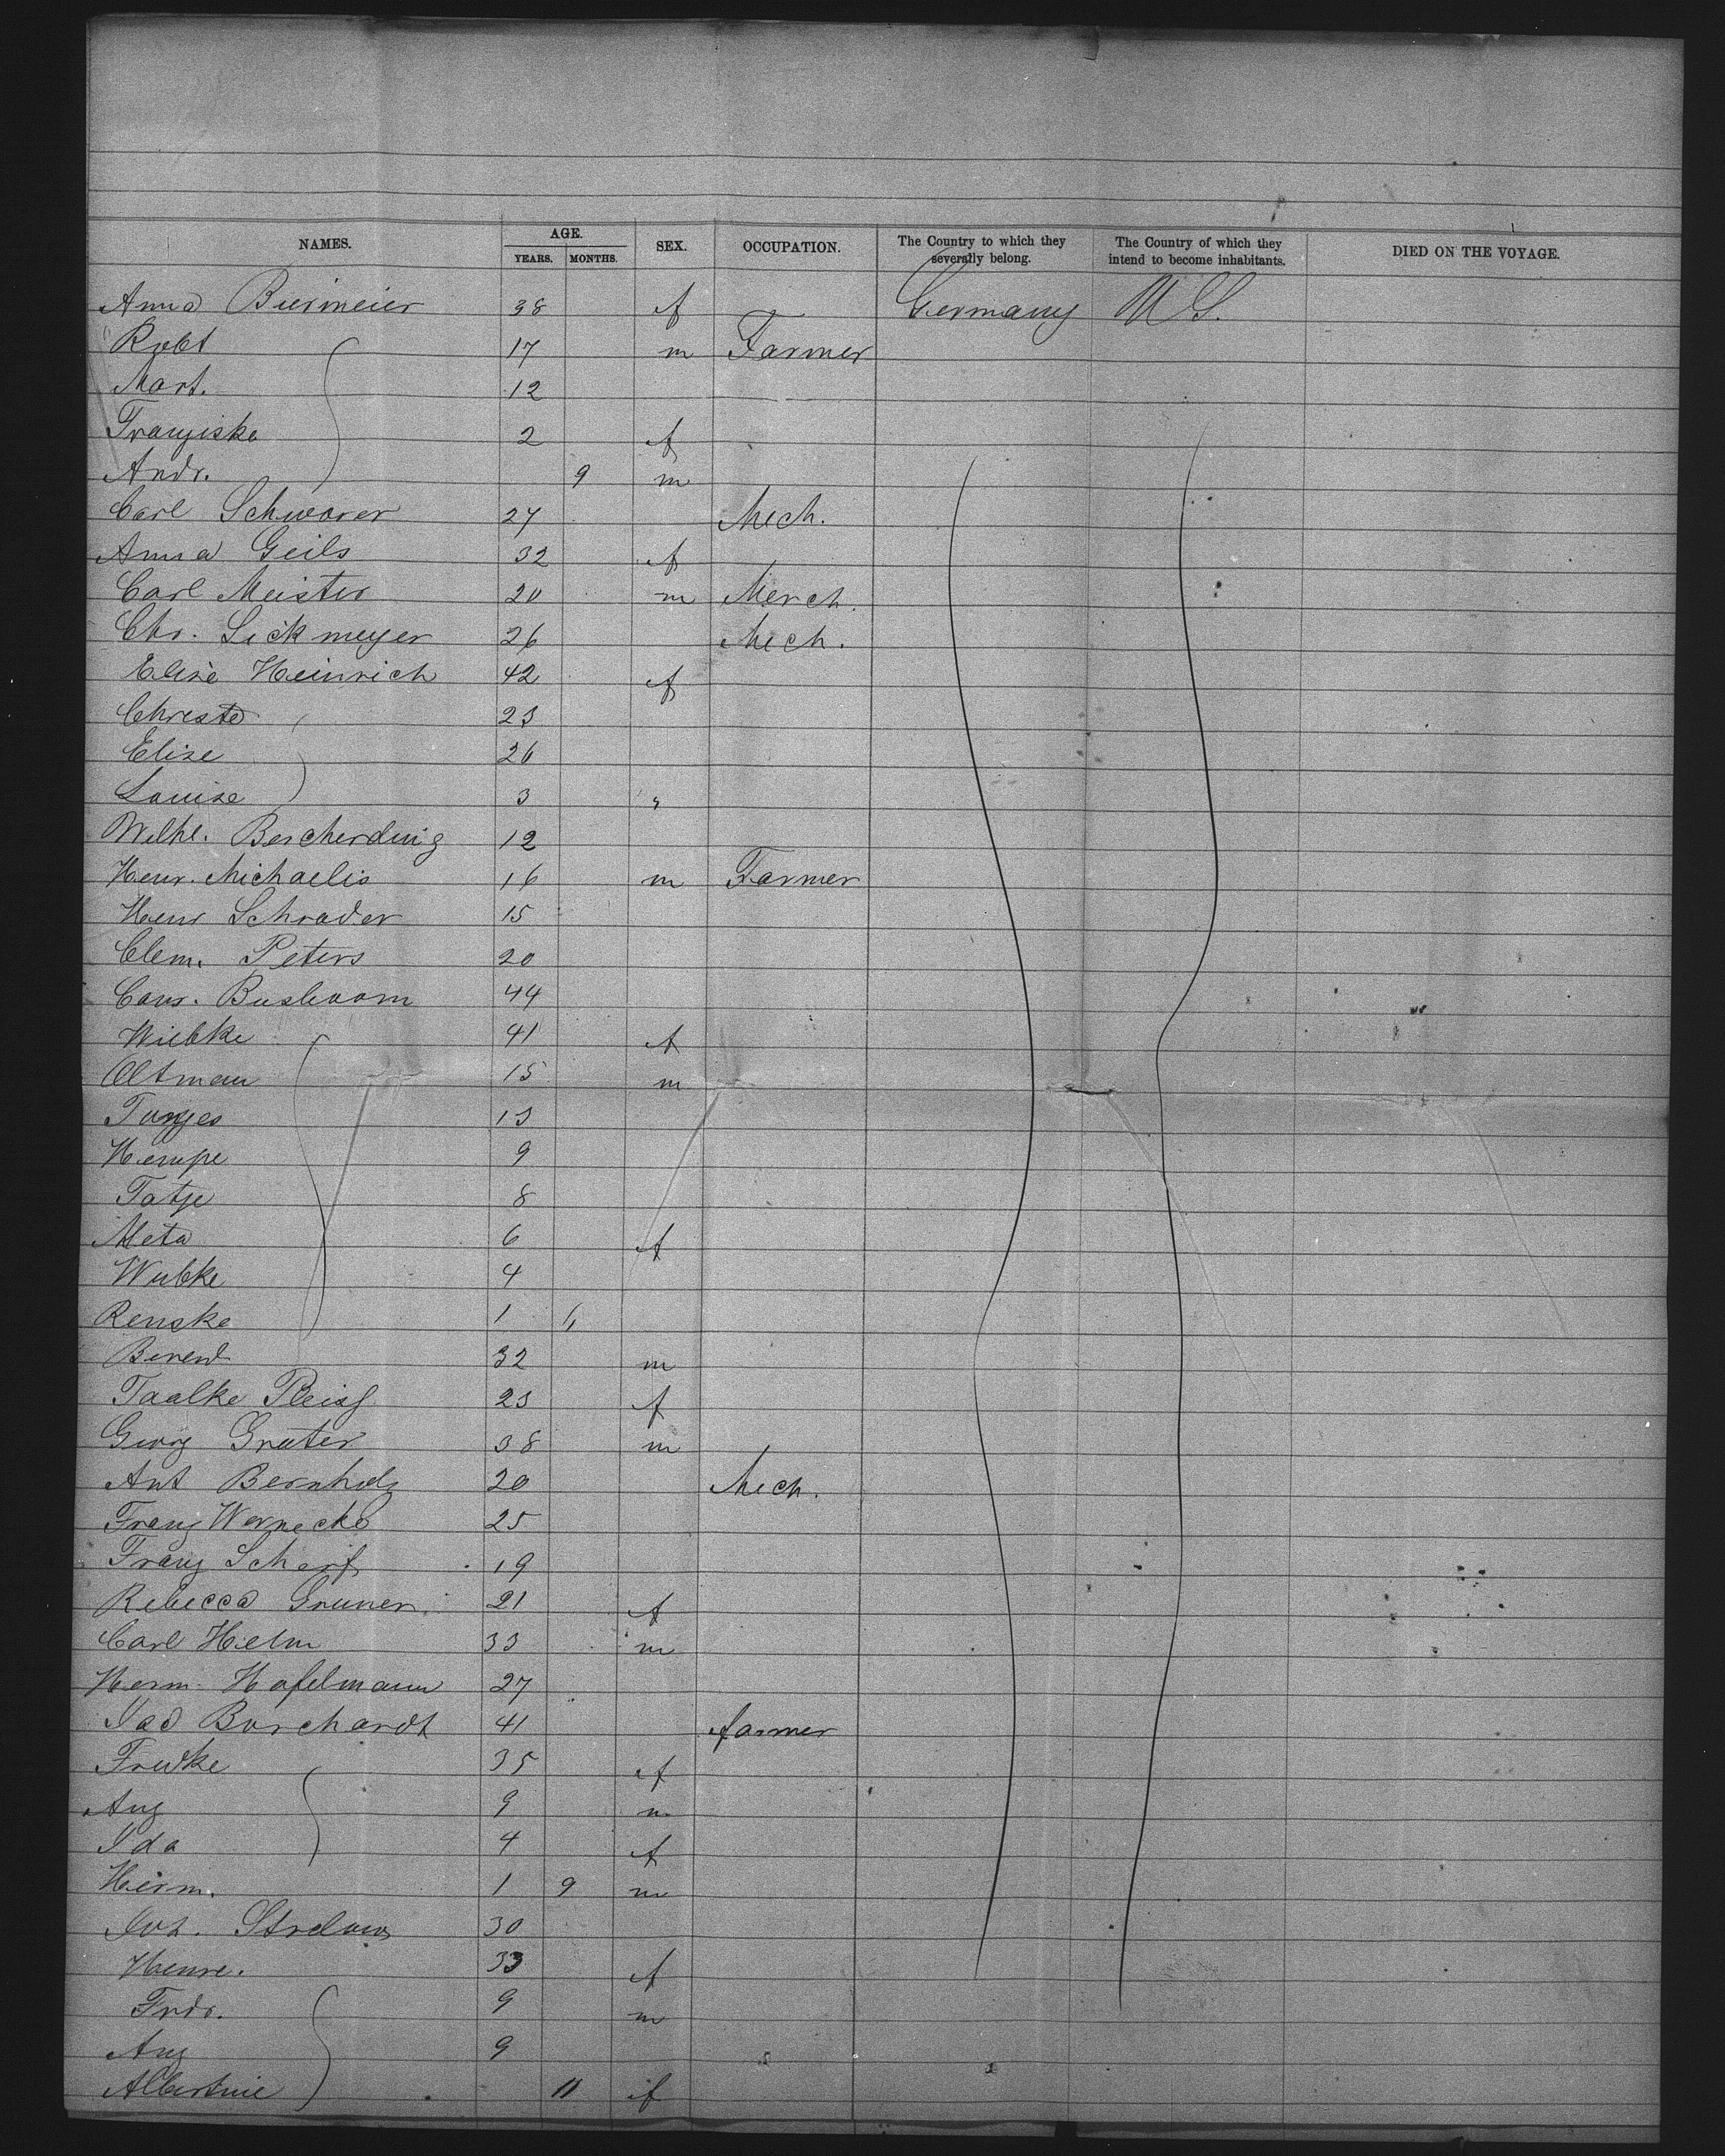 NAMES. AGE. SEX. OCCUPATION. The Country to which they severally belong. The Country of which they intend to become inhabitants. DIED ON THE VOYAGE.
YEARS. MONTHS.
Anna Burmeier 38 f Germany U S.
Robt 17 m Farmer
Mart. 12
Franziska 2 f
Andr. 9 m
Carl Schwarer 27 Mech.
Anna Geils 32 f
Carl Meister 20 m Merch.
Chr. Lickmeyer 26 Mech.
Elise Heinrich 42 f
Christe 23
Elise 26
Louise 3 "
Wilhl. Bercherding 12
Henr. Michaelis 16 m Farmer
Henr Schrader 15
Clem. Peters 20
Conr. Busboom 44
Wiebke 41 f
Oltman 15 m
Tonjes 13
Hempe 9
Tatje 8
Meta 6 f
Wubke 4
Renske 1
Berend 32 m
Taalke 23 f
Georg Grater 38 m
Ant Bernholz 20 Mech.
Franz Wernecke 25
Franz Scharf 19
Rebecca Gruner 21 f
Carl Helm 33 m
Herm. Hafelmann 27
Borchardt 41 farmer
35 f
Aug 9 m
Ida 4 f
Herm. 1 9 m
Joh. Strelow 30
Henre. 33 f
Frdr. 9 m
Aug 9
Albertine 11 f